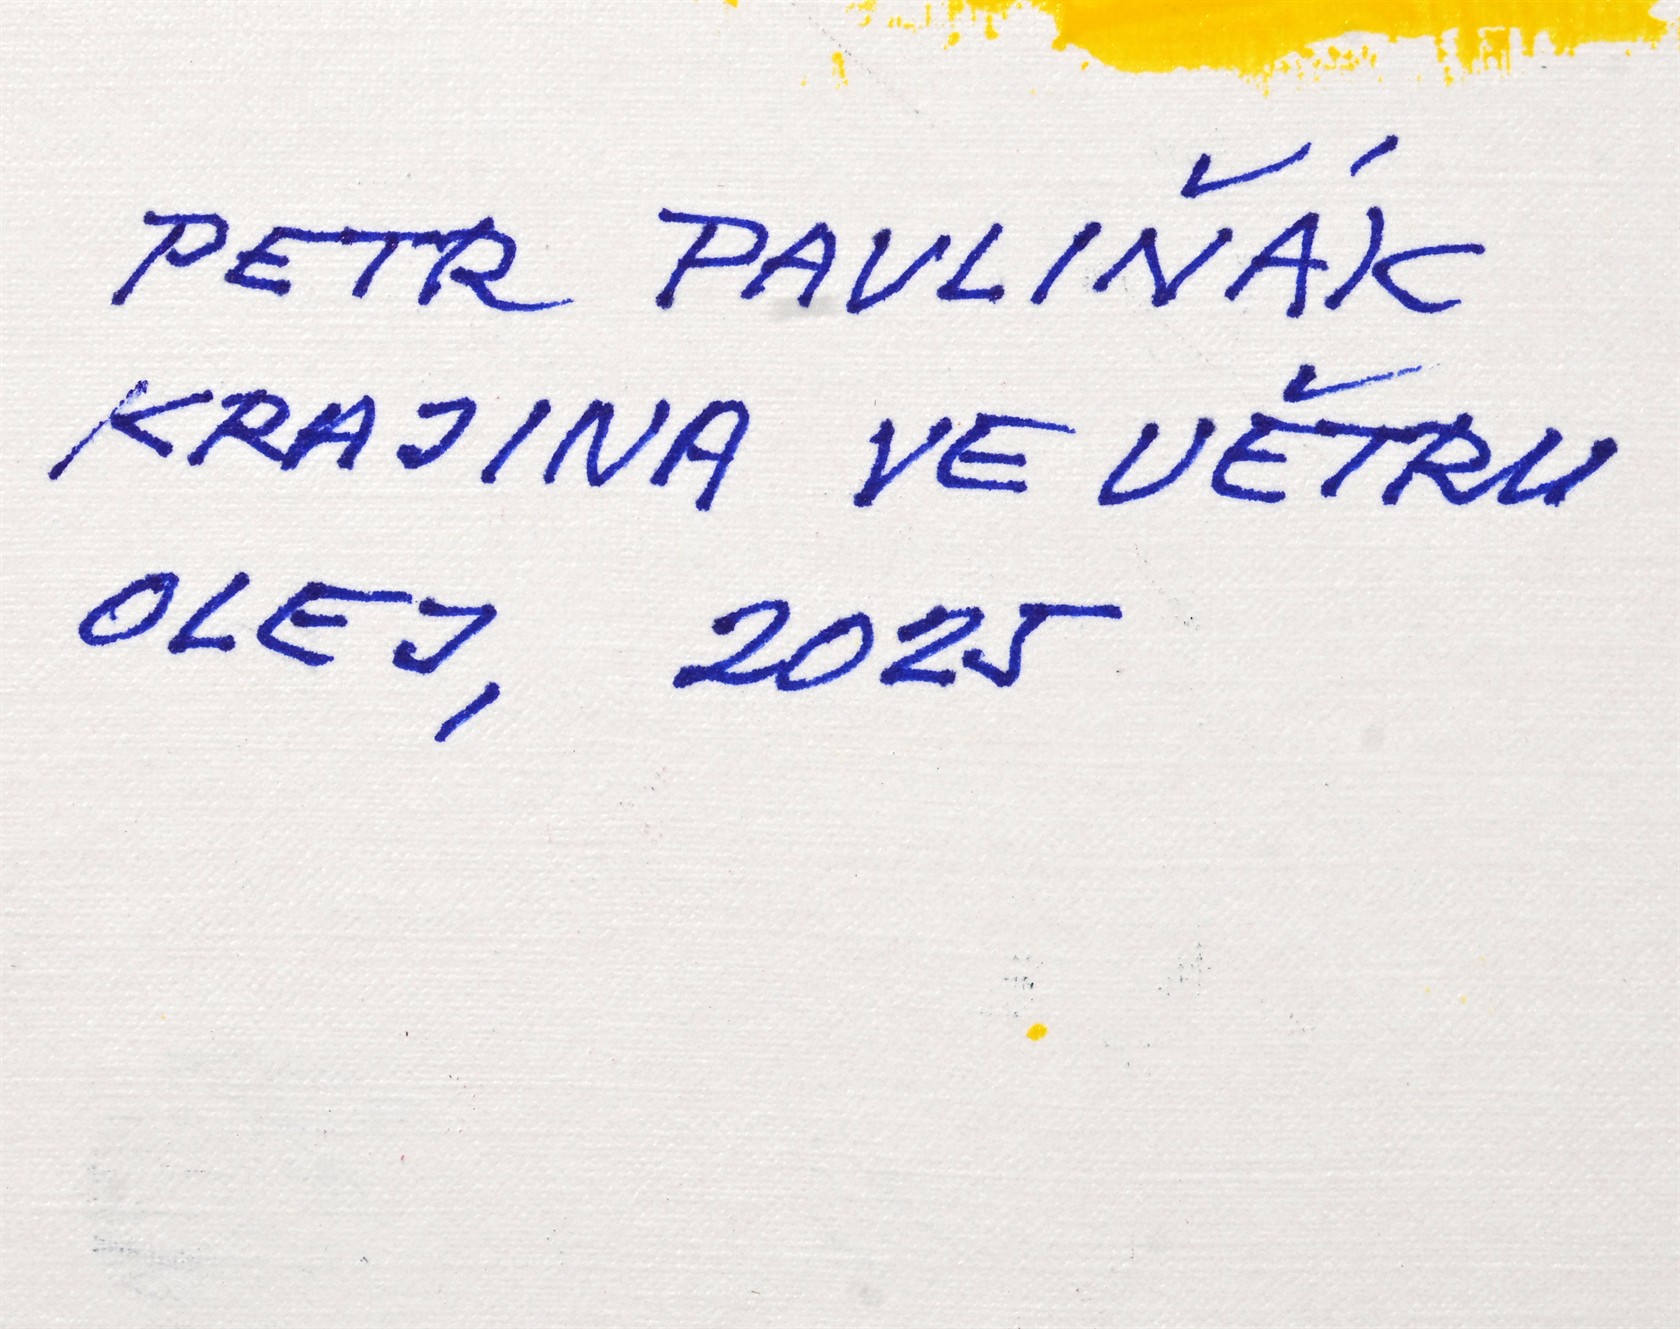 PETR PAVLIŇÁK
KRAJINA VE VĚTRU
OLEJ, 2025